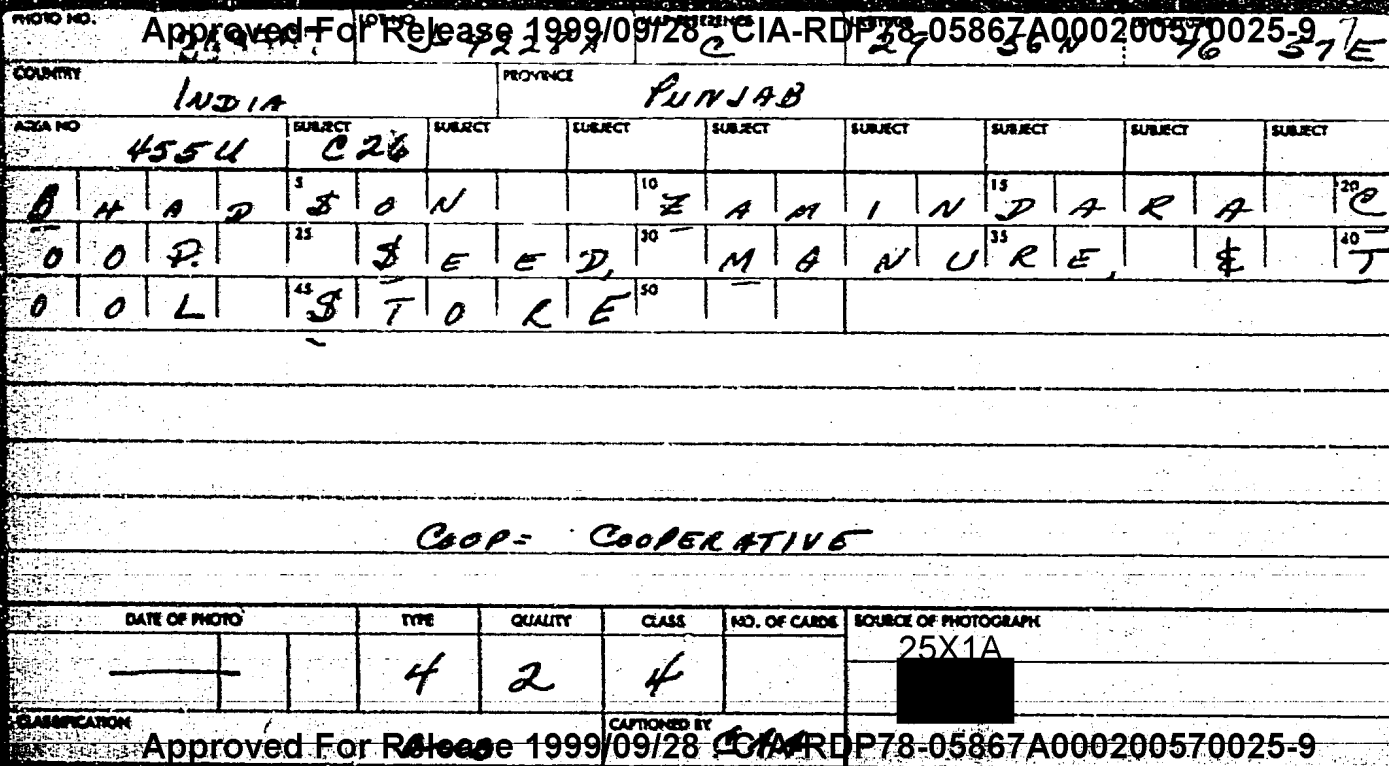 PHOTO NO. LOT NO. MAP REFERENCE
Approved For Release 1999/09/28 : CIA-RDP78-05867A000200570025-9
C 29 56 N 76 57 E
COUNTRY INDIA PROVINCE PUNJAB
AREA NO 455U SUBJECT C26 SUBJECT SUBJECT SUBJECT SUBJECT SUBJECT SUBJECT SUBJECT
BHAD $ON ZAMINDARA C
5 10 15 20
OOP. $EED, MANURE, & T
25 30 35 40
OOL $TORE
45 50
COOP= COOPERATIVE
DATE OF PHOTO TYPE QUALITY CLASS NO. OF CARDS SOURCE OF PHOTOGRAPH
4 2 4 25X1A
CLASSIFICATION CAPTIONED BY
Approved For Release 1999/09/28 : CIA-RDP78-05867A000200570025-9